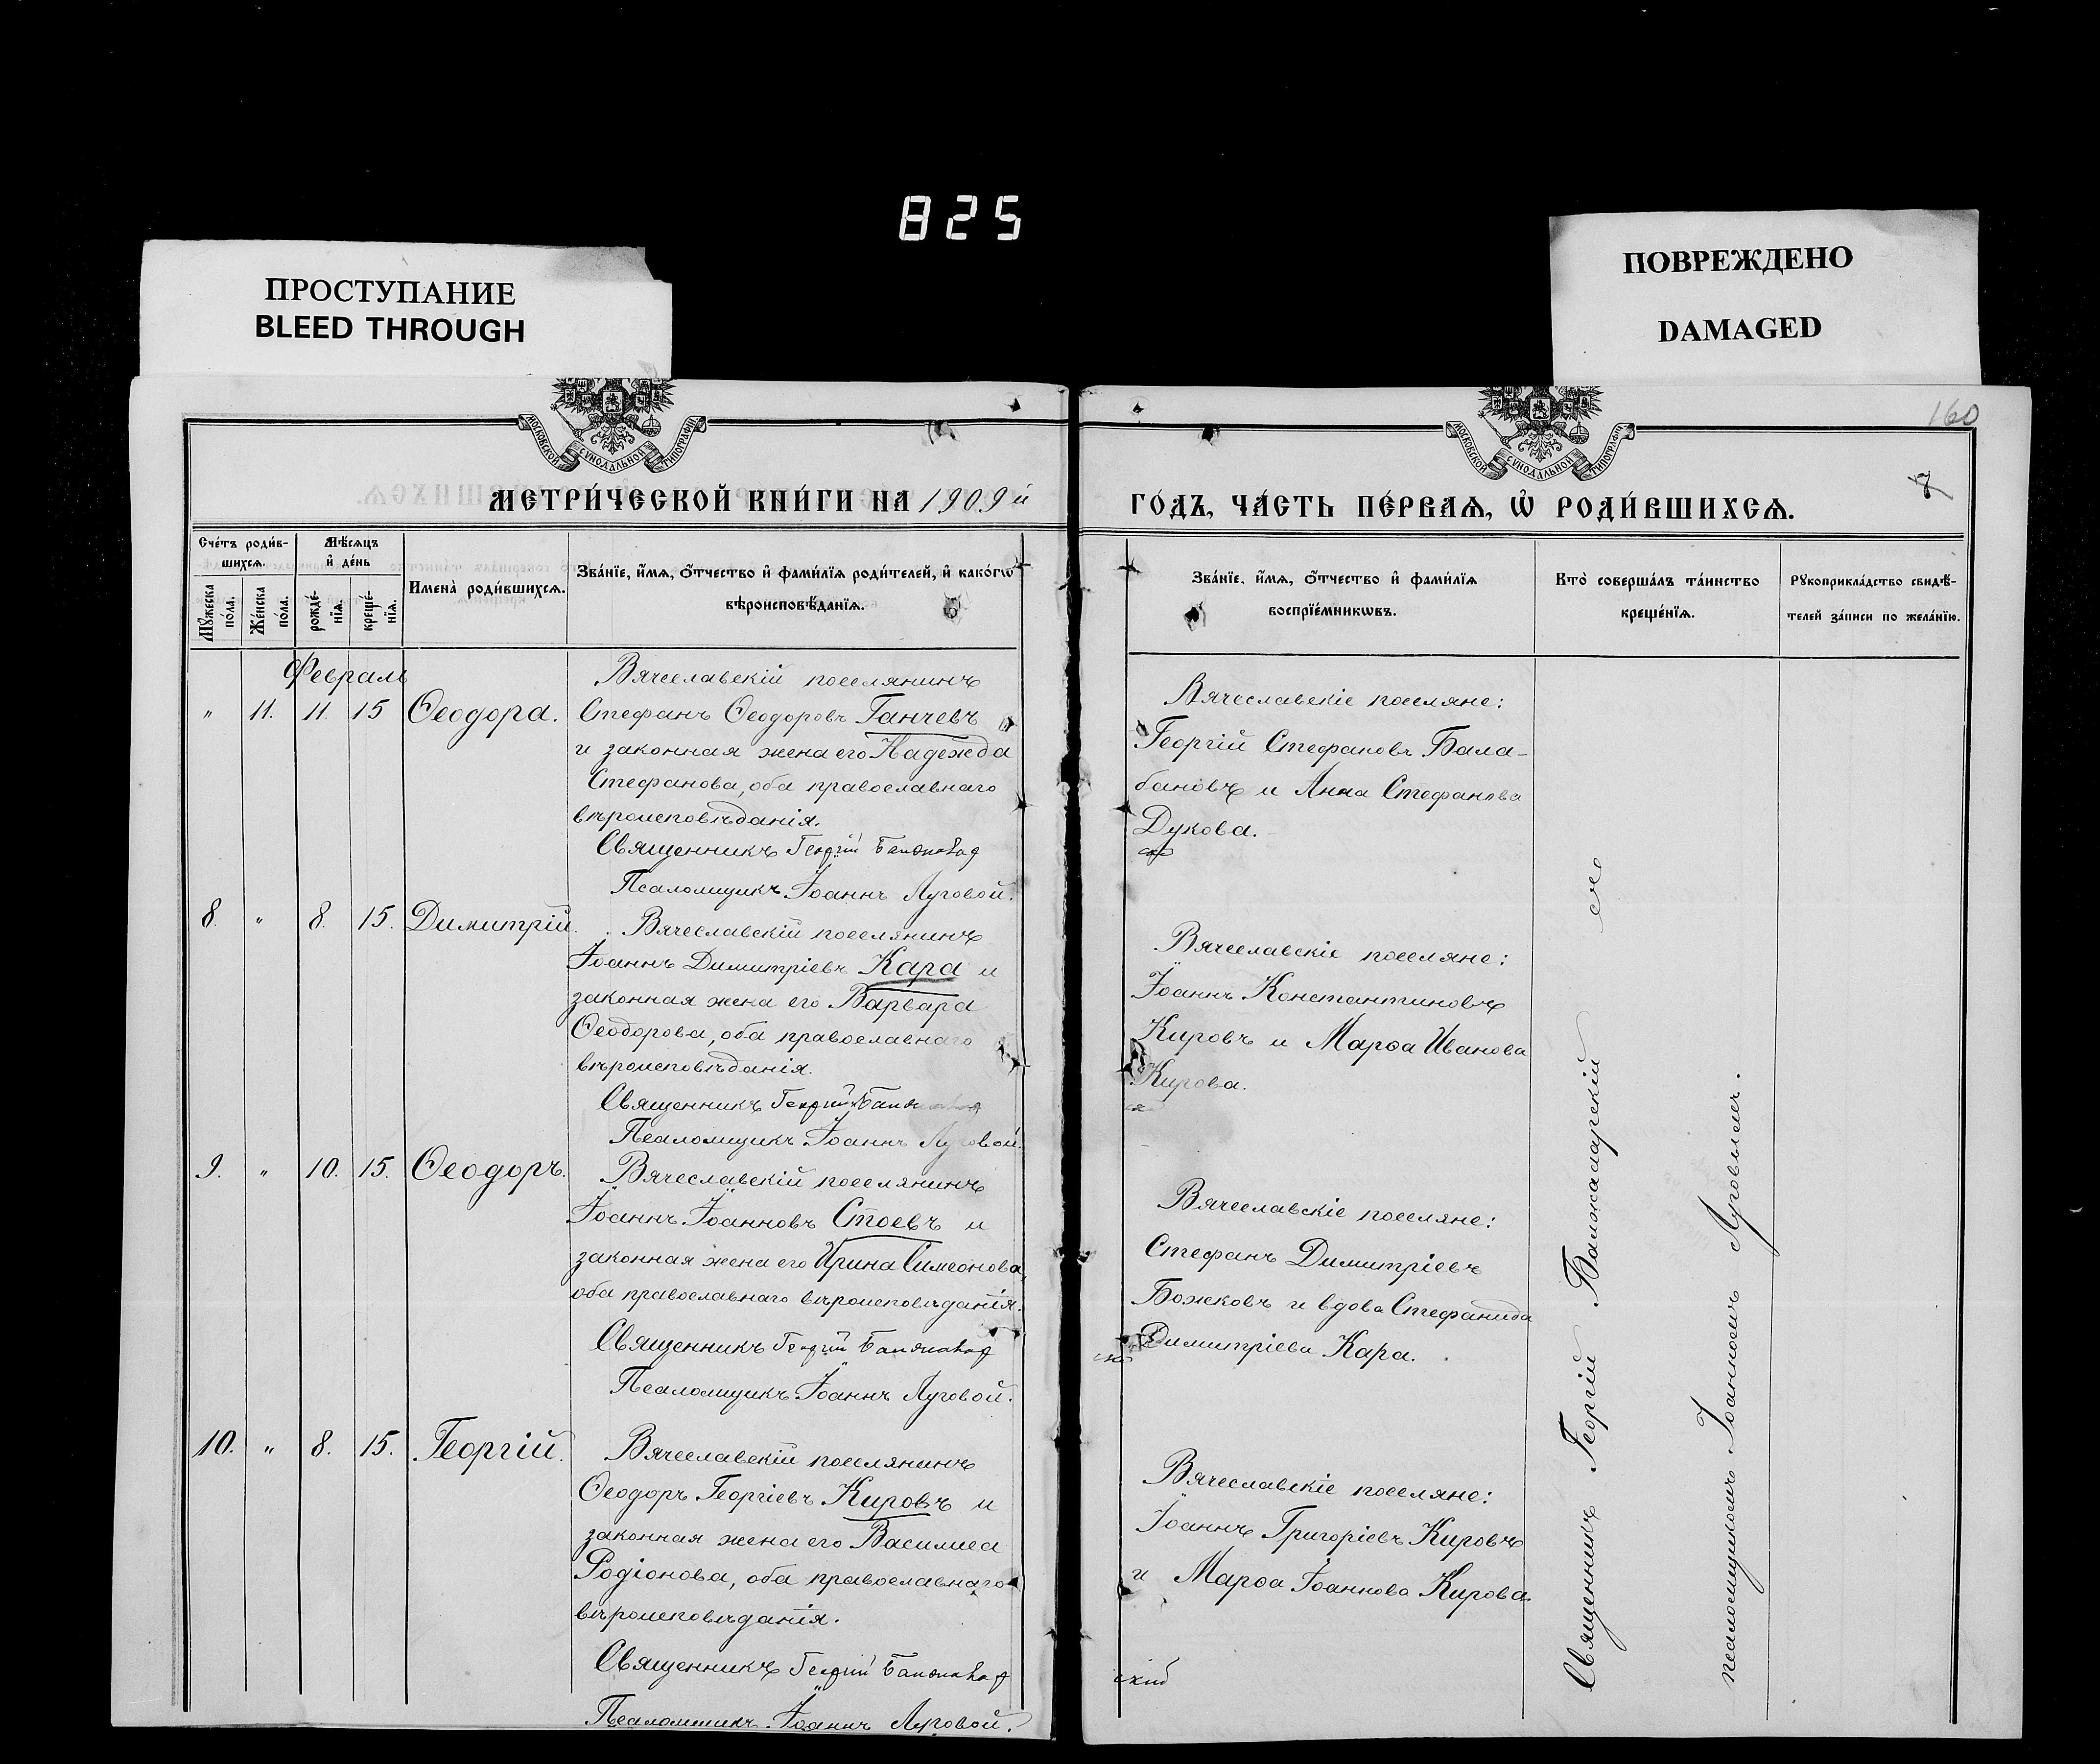 825
ПРОСТУПАНИЕ
BLEED THROUGH
ПОВРЕЖДЕНО
DAMAGED
МОСКОВСКОЙ СѴНОДАЛЬНОЙ ТИПОГРАФІИ
МОСКОВСКОЙ СѴНОДАЛЬНОЙ ТИПОГРАФІИ
160
7
МЕТРИ́ЧЕСКОЙ КНИ́ГИ НА 1909й
ГО́ДЪ, ЧА́СТЬ ПЕ́РВАѦ, Ѡ҆ РОДИ́ВШИХСѦ.
Сче́тъ роди́в-
шихсѧ.
Мꙋ́жеска
по́ла.
Же́нска
по́ла.
Мѣ́сѧцъ
и҆ де́нь
рожде́-
нїѧ.
креще́-
нїѧ.
Имена̀ роди́вшихсѧ.
Зва́нїе, и҆́мѧ, ѻ҆́тчество и҆ фами́лїѧ роди́телей, и҆ како́гѡ
вѣроисповѣ́данїѧ.
Зва́нїе, и҆́мѧ, ѻ҆́тчество и҆ фами́лїѧ
воспрїе́мникѡвъ.
Кто̀ соверша́лъ та́инство
креще́нїѧ.
Рꙋкоприкла́дство свидѣ́-
телей за́писи по жела́нїю.
Февраль
" 11. 11. 15 Ѳеодора.
Вячеславскій поселянинъ
Стефанъ Ѳеодоровъ Ганчевъ
и законная жена его Надежда
Стефанова, оба православнаго
вѣроисповѣданія.
Священникъ Георгій
Псаломщикъ Іоаннъ Луговой.
Вячеславскіе поселяне:
Георгій Стефановъ Бала-
бановъ и Анна Стефанова
Дукова.
8. " 8. 15. Димитрій.
Вячеславскій поселянинъ
Іоаннъ Димитріевъ Кара и
законная жена его Варвара
Ѳеодорова, оба православнаго
вѣроисповѣданія.
Священникъ Георгій
Псаломщикъ Іоаннъ Луговой.
Вячеславскіе поселяне:
Іоаннъ Константиновъ
Кировъ и Марѳа Иванова
Кирова.
9. " 10. 15. Ѳеодоръ.
Вячеславскій поселянинъ
Іоаннъ Іоанновъ Стоевъ и
законная жена его Ирина Симеонова,
оба православнаго вѣроисповѣданія.
Священникъ Георгій
Псаломщикъ Іоаннъ Луговой.
Вячеславскіе поселяне:
Стефанъ Димитріевъ
Божковъ и вдова Стефанида
Димитріева Кара.
10. " 8. 15. Георгій.
Вячеславскій поселянинъ
Ѳеодоръ Георгіевъ Кировъ и
законная жена его Василиса
Родіонова, оба православнаго
вѣроисповѣданія.
Священникъ Георгій
Псаломщикъ Іоаннъ Луговой.
Вячеславскіе поселяне:
Іоаннъ Григоріевъ Кировъ
и Марѳа Іоаннова Кирова.
скій
Священникъ Георгій съ
псаломщикомъ Іоанномъ Луговымъ.